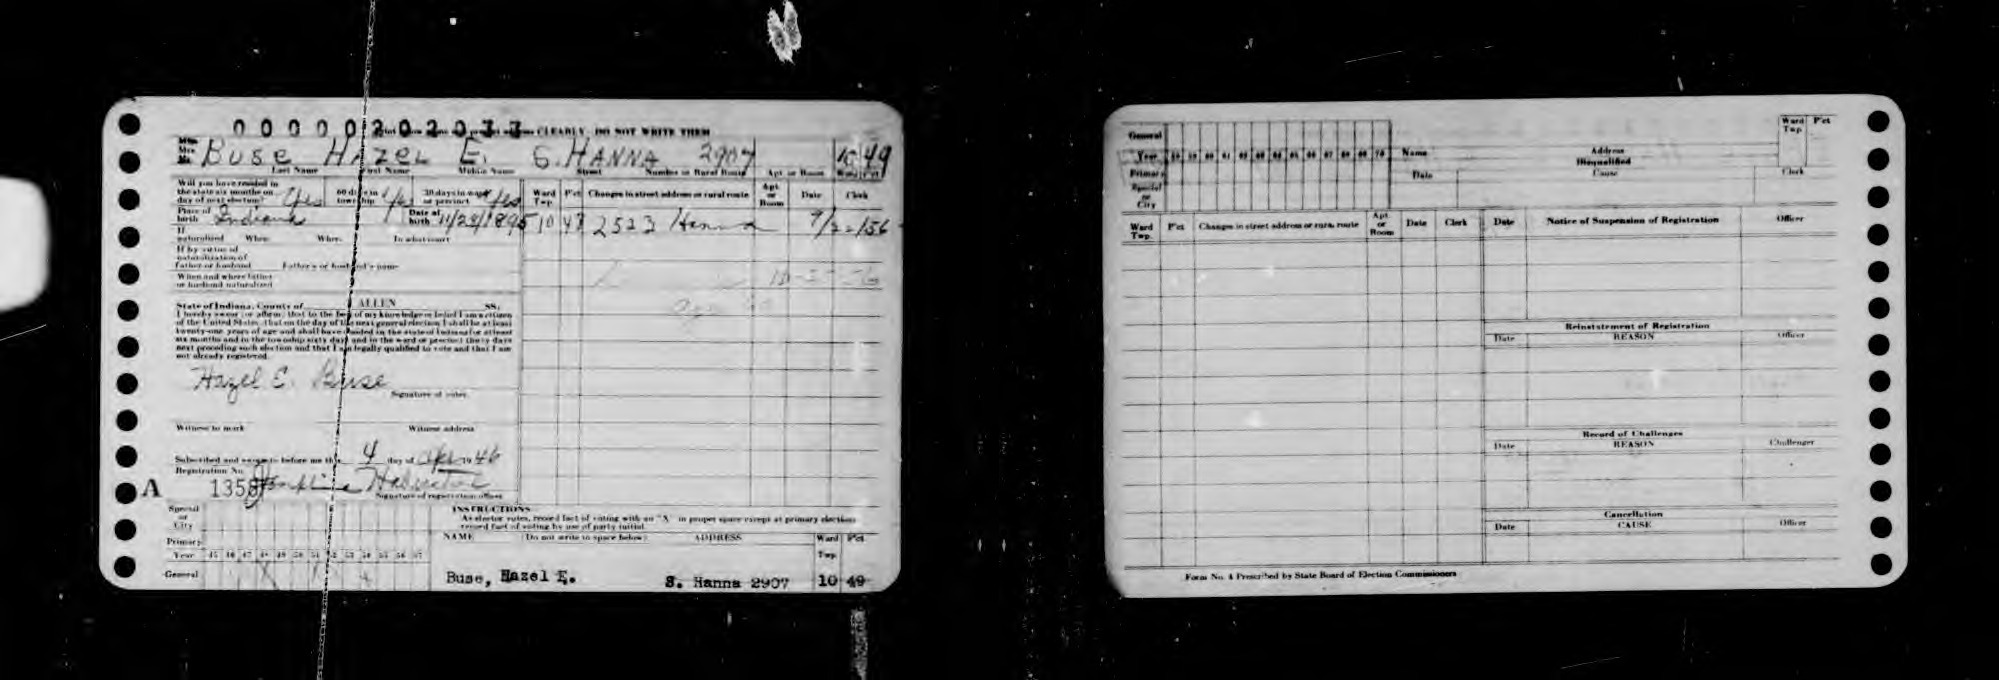 0 0 0 0 0 2 0 2 0 3 3 CLEARLY. DO NOT WRITE THEM
Miss
Mrs.
Mr. BUSE HAZEL E. S. HANNA 2907 10 49
Last Name First Name Middle Name Street Number or Rural Route Apt. or Room Ward Pct
Will you have resided in
the state six months on
day of next election? Yes 60 days in
township Yes 30 days in ward
or precinct Yes
Place of
birth Indiana Date of
birth 11/29/1895
If
naturalized When Where In what court
If by virtue of
naturalization of
Father or husband Father's or husband's name
When and where father
or husband naturalized
State of Indiana, County of ALLEN SS:
I hereby swear (or affirm) that to the best of my knowledge or belief I am a citizen
of the United States, that on the day of the next general election I shall be at least
twenty-one years of age and shall have resided in the state of Indiana for at least
six months and in the township sixty days and in the ward or precinct thirty days
next preceding such election and that I am legally qualified to vote and that I am
not already registered.
Hazel E. Buse
Signature of voter
Witness to mark Witness address
Subscribed and sworn to before me this 4 day of Apr 1946
Registration No.
A 1358
Signature of registration officer
Ward
Twp. P'ct Changes in street address or rural route Apt.
or
Room Date Clerk
10 47 2523 Hanna 9/22/56
Special
or
City
Primary
Year 45 46 47 48 49 50 51 52 53 54 55 56 57
General
INSTRUCTIONS
As elector votes, record fact of voting with an "X" in proper space except at primary election
record fact of voting by use of party initial.
NAME (Do not write in space below) ADDRESS Ward
Twp. P'ct
Buse, Hazel E. S. Hanna 2907 10 49
General
Year 58 59 60 61 62 63 64 65 66 67 68 69 70
Primary
Special
or
City
Name Address Ward
Twp. P'ct
Disqualified
Date Cause Clerk
Ward
Twp. P'ct Changes in street address or rural route Apt.
or
Room Date Clerk
Date Notice of Suspension of Registration Officer
Reinstatement of Registration
Date REASON Officer
Record of Challenges
Date REASON Challenger
Cancellation
Date CAUSE Officer
Form No. 4 Prescribed by State Board of Election Commissioners